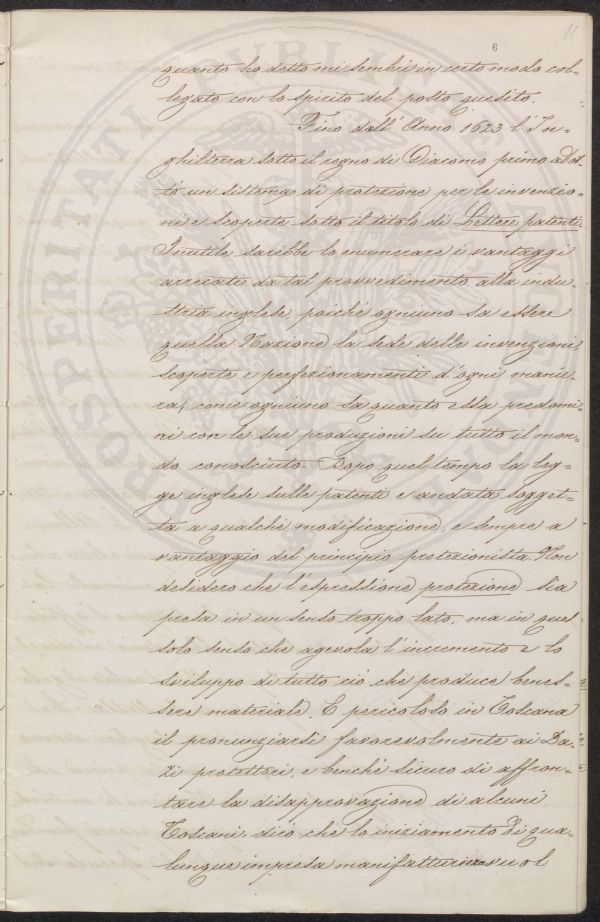 11
6
quanto ho detto mi sembri in certo modo col-
legato con lo spirito del posto quesito.
Fino dall' Anno 1623 l'In-
ghilterra sotto il regno di Diacomo primo adot-
tò un sistema di protezione per le invenzio-
ni e scoperte sotto il titolo di Lettere patenti.
Inutile sarebbe lo numerare i vantaggi
arrecati da tal provvedimento alla indu-
stria inglese, poiché ogniuno sa essere
quella Nazione la sede delle invenzioni,
scoperte e perfezionamenti d'ogni manie-
ra, come ogniuno sa quanto ella predomi-
ni con le sue produzioni su tutto il mon-
do conosciuto. Dopo quel tempo la leg-
ge inglese sulle patenti è andata sogget-
ta a qualche modificazione, e sempre a
vantaggio del principio protezionista. Non
desidero che l'espressione protezione sia
presa in un senso troppo lato, ma in quel
solo senso che agevola l'incremento e lo
sviluppo di tutto ciò che produce benes-
sere materiale. È pericoloso in Toscana
il pronunziarsi favorevolmente ai Da-
zi protettori, e benché sicuro di affron-
tare la disapprovazione di alcuni
Toscani, dico che lo iniziamento di qua-
lunque impresa manifatturiera vuol
PROSPERITATI PVBLICAE